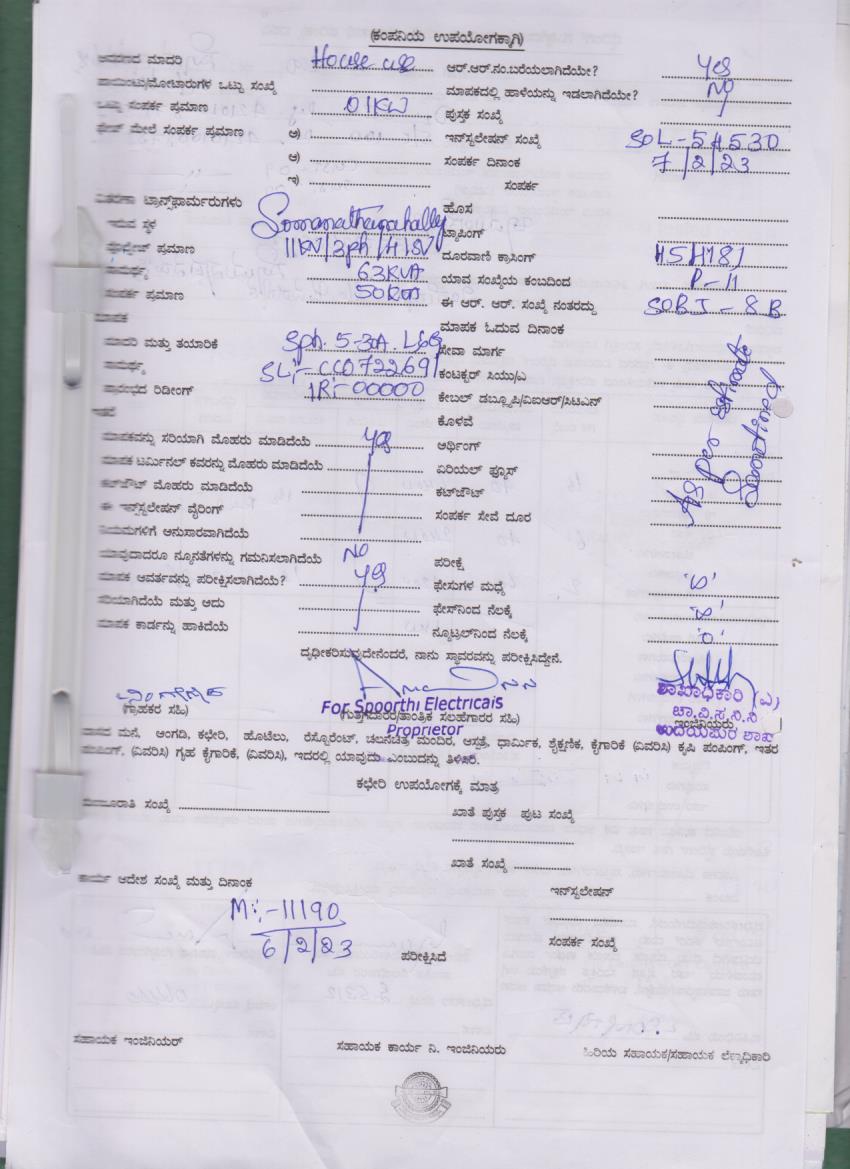 (ಕಂಪನಿಯ ಉಪಯೋಗಕ್ಕಾಗಿ)
ಮಾದರಿ House use ಆರ್.ಆರ್.ನಂ.ಬರೆಯಲಾಗಿದೆಯೇ? Yes
ಒಟ್ಟು ಸಂಖ್ಯೆ ಮಾಪಕದಲ್ಲಿ ಹಾಳೆಯನ್ನು ಇಡಲಾಗಿದೆಯೇ? No
ಒಟ್ಟು ಸಂಪರ್ಕ ಪ್ರಮಾಣ 01KW ಪುಸ್ತಕ ಸಂಖ್ಯೆ
ಮೇಲೆ ಸಂಪರ್ಕ ಪ್ರಮಾಣ ಅ) ಇನ್‌ಸ್ಟಲೇಷನ್ ಸಂಖ್ಯೆ SOL-54530
ಆ) ಸಂಪರ್ಕ ದಿನಾಂಕ 7/2/23
ಇ) ಸಂಪರ್ಕ
ವಿತರಣಾ ಟ್ರಾನ್ಸ್‌ಫಾರ್ಮರುಗಳು ಹೊಸ
ಇರುವ ಸ್ಥಳ Somanathanahally ಟ್ಯಾಪಿಂಗ್
ಪ್ರಮಾಣ 11KV/3ph/ ದೂರವಾಣಿ ಕ್ರಾಸಿಂಗ್
ಸಾಮರ್ಥ್ಯ 63KVA ಯಾವ ಸಂಖ್ಯೆಯ ಕಂಬದಿಂದ P-11
ಸಂಪರ್ಕ ಪ್ರಮಾಣ ಈ ಆರ್. ಆರ್. ಸಂಖ್ಯೆ ನಂತರದ್ದು SOBJ-8B
ಮಾಪಕ ಮಾಪಕ ಓದುವ ದಿನಾಂಕ
ಮಾದರಿ ಮತ್ತು ತಯಾರಿಕೆ Sph. 5-30A. L&G ಸೇವಾ ಮಾರ್ಗ
ಸಾಮರ್ಥ್ಯ SL:- CC0722691 ಕಂಟಕ್ಟರ್ ಸಿಯು/ಎ
ರೀಡಿಂಗ್ IR:- 00000 ಕೇಬಲ್ ಡಬ್ಲ್ಯೂಪಿ/ಐಆರ್/ಸಿಟಿಎನ್
ಕೊಳವೆ
ಮಾಪಕವನ್ನು ಸರಿಯಾಗಿ ಮೊಹರು ಮಾಡಿದೆಯೆ Yes ಆರ್ಥಿಂಗ್
ಮಾಪಕ ಟರ್ಮಿನಲ್ ಕವರನ್ನು ಮೊಹರು ಮಾಡಿದೆಯೆ ಏರಿಯಲ್ ಫ್ಯೂಸ್
ಕಟ್‌ಔಟ್ ಮೊಹರು ಮಾಡಿದೆಯೆ ಕಟ್‌ಔಟ್
ಈ ಇನ್‌ಸ್ಟಲೇಷನ್ ವೈರಿಂಗ್ ಸಂಪರ್ಕ ಸೇವೆ ದೂರ
As per estimate
ನಿಯಮಗಳಿಗೆ ಅನುಸಾರವಾಗಿದೆಯೆ
ಯಾವುದಾದರೂ ನ್ಯೂನತೆಗಳನ್ನು ಗಮನಿಸಲಾಗಿದೆಯೆ NO ಪರೀಕ್ಷೆ
ಮಾಪಕ ಆವರ್ತವನ್ನು ಪರೀಕ್ಷಿಸಲಾಗಿದೆಯೆ? Yes ಫೇಸುಗಳ ಮಧ್ಯೆ
ಸರಿಯಾಗಿದೆಯೆ ಮತ್ತು ಅದು ಫೇಸ್‌ನಿಂದ ನೆಲಕ್ಕೆ
ಮಾಪಕ ಕಾರ್ಡನ್ನು ಹಾಕಿದೆಯೆ ನ್ಯೂಟ್ರಲ್‌ನಿಂದ ನೆಲಕ್ಕೆ
ದೃಢೀಕರಿಸುವುದೇನೆಂದರೆ, ನಾನು ಸ್ಥಾವರವನ್ನು ಪರೀಕ್ಷಿಸಿದ್ದೇನೆ.
(ಗ್ರಾಹಕರ ಸಹಿ) For Spoorthi Electricals ಶಾಖಾಧಿಕಾರಿ (ವಿ)
(ಗುತ್ತಿಗೆದಾರರ/ತಾಂತ್ರಿಕ ಸಲಹೆಗಾರರ ಸಹಿ) ಚಾ.ವಿ.ಸ.ನಿ.ನಿ ಇಂಜಿನಿಯರು
Proprietor ಉದಯಪುರ ಶಾಖೆ
ಮನೆ, ಅಂಗಡಿ, ಕಛೇರಿ, ಹೊಟೇಲು, ರೆಸ್ಟೋರೆಂಟ್, ಚಲನಚಿತ್ರ ಮಂದಿರ, ಆಸ್ಪತ್ರೆ, ಧಾರ್ಮಿಕ, ಶೈಕ್ಷಣಿಕ, ಕೈಗಾರಿಕೆ (ವಿವರಿಸಿ) ಕೃಷಿ ಪಂಪಿಂಗ್, ಇತರ
ಪಂಪಿಂಗ್, (ವಿವರಿಸಿ) ಗೃಹ ಕೈಗಾರಿಕೆ, (ವಿವರಿಸಿ), ಇದರಲ್ಲಿ ಯಾವುದು ಎಂಬುದನ್ನು ತಿಳಿಸಿರಿ.
ಕಛೇರಿ ಉಪಯೋಗಕ್ಕೆ ಮಾತ್ರ
ಮಂಜೂರಾತಿ ಸಂಖ್ಯೆ ಖಾತೆ ಪುಸ್ತಕ ಪುಟ ಸಂಖ್ಯೆ
ಖಾತೆ ಸಂಖ್ಯೆ
ಕಾರ್ಯ ಆದೇಶ ಸಂಖ್ಯೆ ಮತ್ತು ದಿನಾಂಕ ಇನ್‌ಸ್ಟಲೇಷನ್
M:-11190
6/2/23 ಪರೀಕ್ಷಿಸಿದೆ ಸಂಪರ್ಕ ಸಂಖ್ಯೆ
ಸಹಾಯಕ ಇಂಜಿನಿಯರ್ ಸಹಾಯಕ ಕಾರ್ಯ ನಿ. ಇಂಜಿನಿಯರು ಹಿರಿಯ ಸಹಾಯಕ/ಸಹಾಯಕ ಲೆಕ್ಕಾಧಿಕಾರಿ